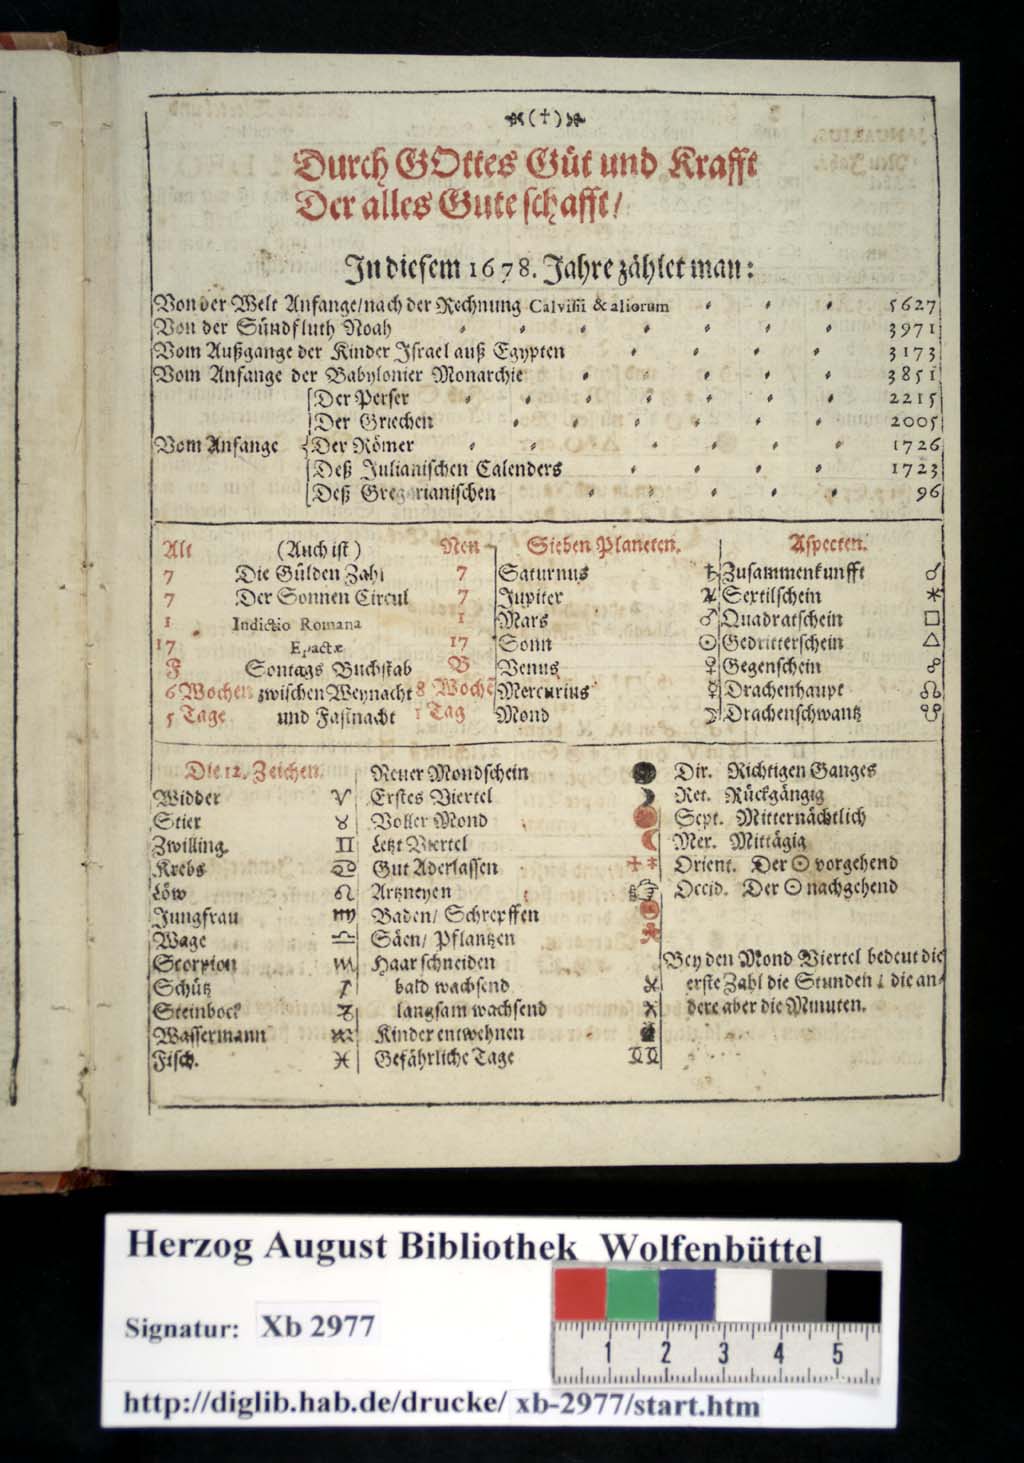 (†)
Durch GOttes Güt und Krafft
Der alles Gute schafft/
In diesem 1678. Jahre zählet man:
Von der Welt Anfange/nach der Rechnung Calvisii & aliorum 5627
Von der Sündfluth Noah 3971
Vom Außgange der Kinder Israel auß Egypten 3173
Vom Anfange der Babylonier Monarchie 3851
Der Perser 2215
Der Griechen 2005
Vom Anfange Der Römer 1726
Deß Julianischen Calenders 1723
Deß Gregorianischen 96
Alt (Auch ist) Neu
7 Die Gülden Zahl 7
7 Der Sonnen Circul 7
1 Indictio Romana 1
17 Epactæ 17
F Sontags Buchstab B
6 Wochen zwischen Weynacht 8 Woche
5 Tage und Fastnacht 1 Tag
Sieben Planeten.
Saturnus ♄
Jupiter ♃
Mars ♂
Sonn ☉
Venus ♀
Mercurius ☿
Mond ☽
Aspecten.
Zusammenkunfft ☌
Sextilschein ⚹
Quadratschein □
Gedritterschein △
Gegenschein ☍
Drachenhaupt ☊
Drachenschwantz ☋
Die 12. Zeichen.
Widder ♈
Stier ♉
Zwilling. ♊
Krebs ♋
Löw ♌
Jungfrau ♍
Wage ♎
Scorpion ♏
Schütz ♐
Steinbock ♑
Wassermann ♒
Fisch. ♓
Neuer Mondschein
Erstes Viertel
Voller Mond
Letzt Viertel
Gut Aderlassen
Artzneyen
Baden/ Schrepffen
Säen/ Pflantzen
Haar schneiden
bald wachsend
langsam wachsend
Kinder entwehnen
Gefährliche Tage
Dir. Richtigen Ganges
Ret. Rückgängig
Sept. Mitternächtlich
Mer. Mittägig
Orient. Der ☉ vorgehend
Occid. Der ☉ nachgehend
Bey den Mond Viertel bedeut die
erste Zahl die Stunden / die an-
dere aber die Minuten.
Herzog August Bibliothek Wolfenbüttel
Signatur: Xb 2977
1 2 3 4 5
http://diglib.hab.de/drucke/ xb-2977/start.htm